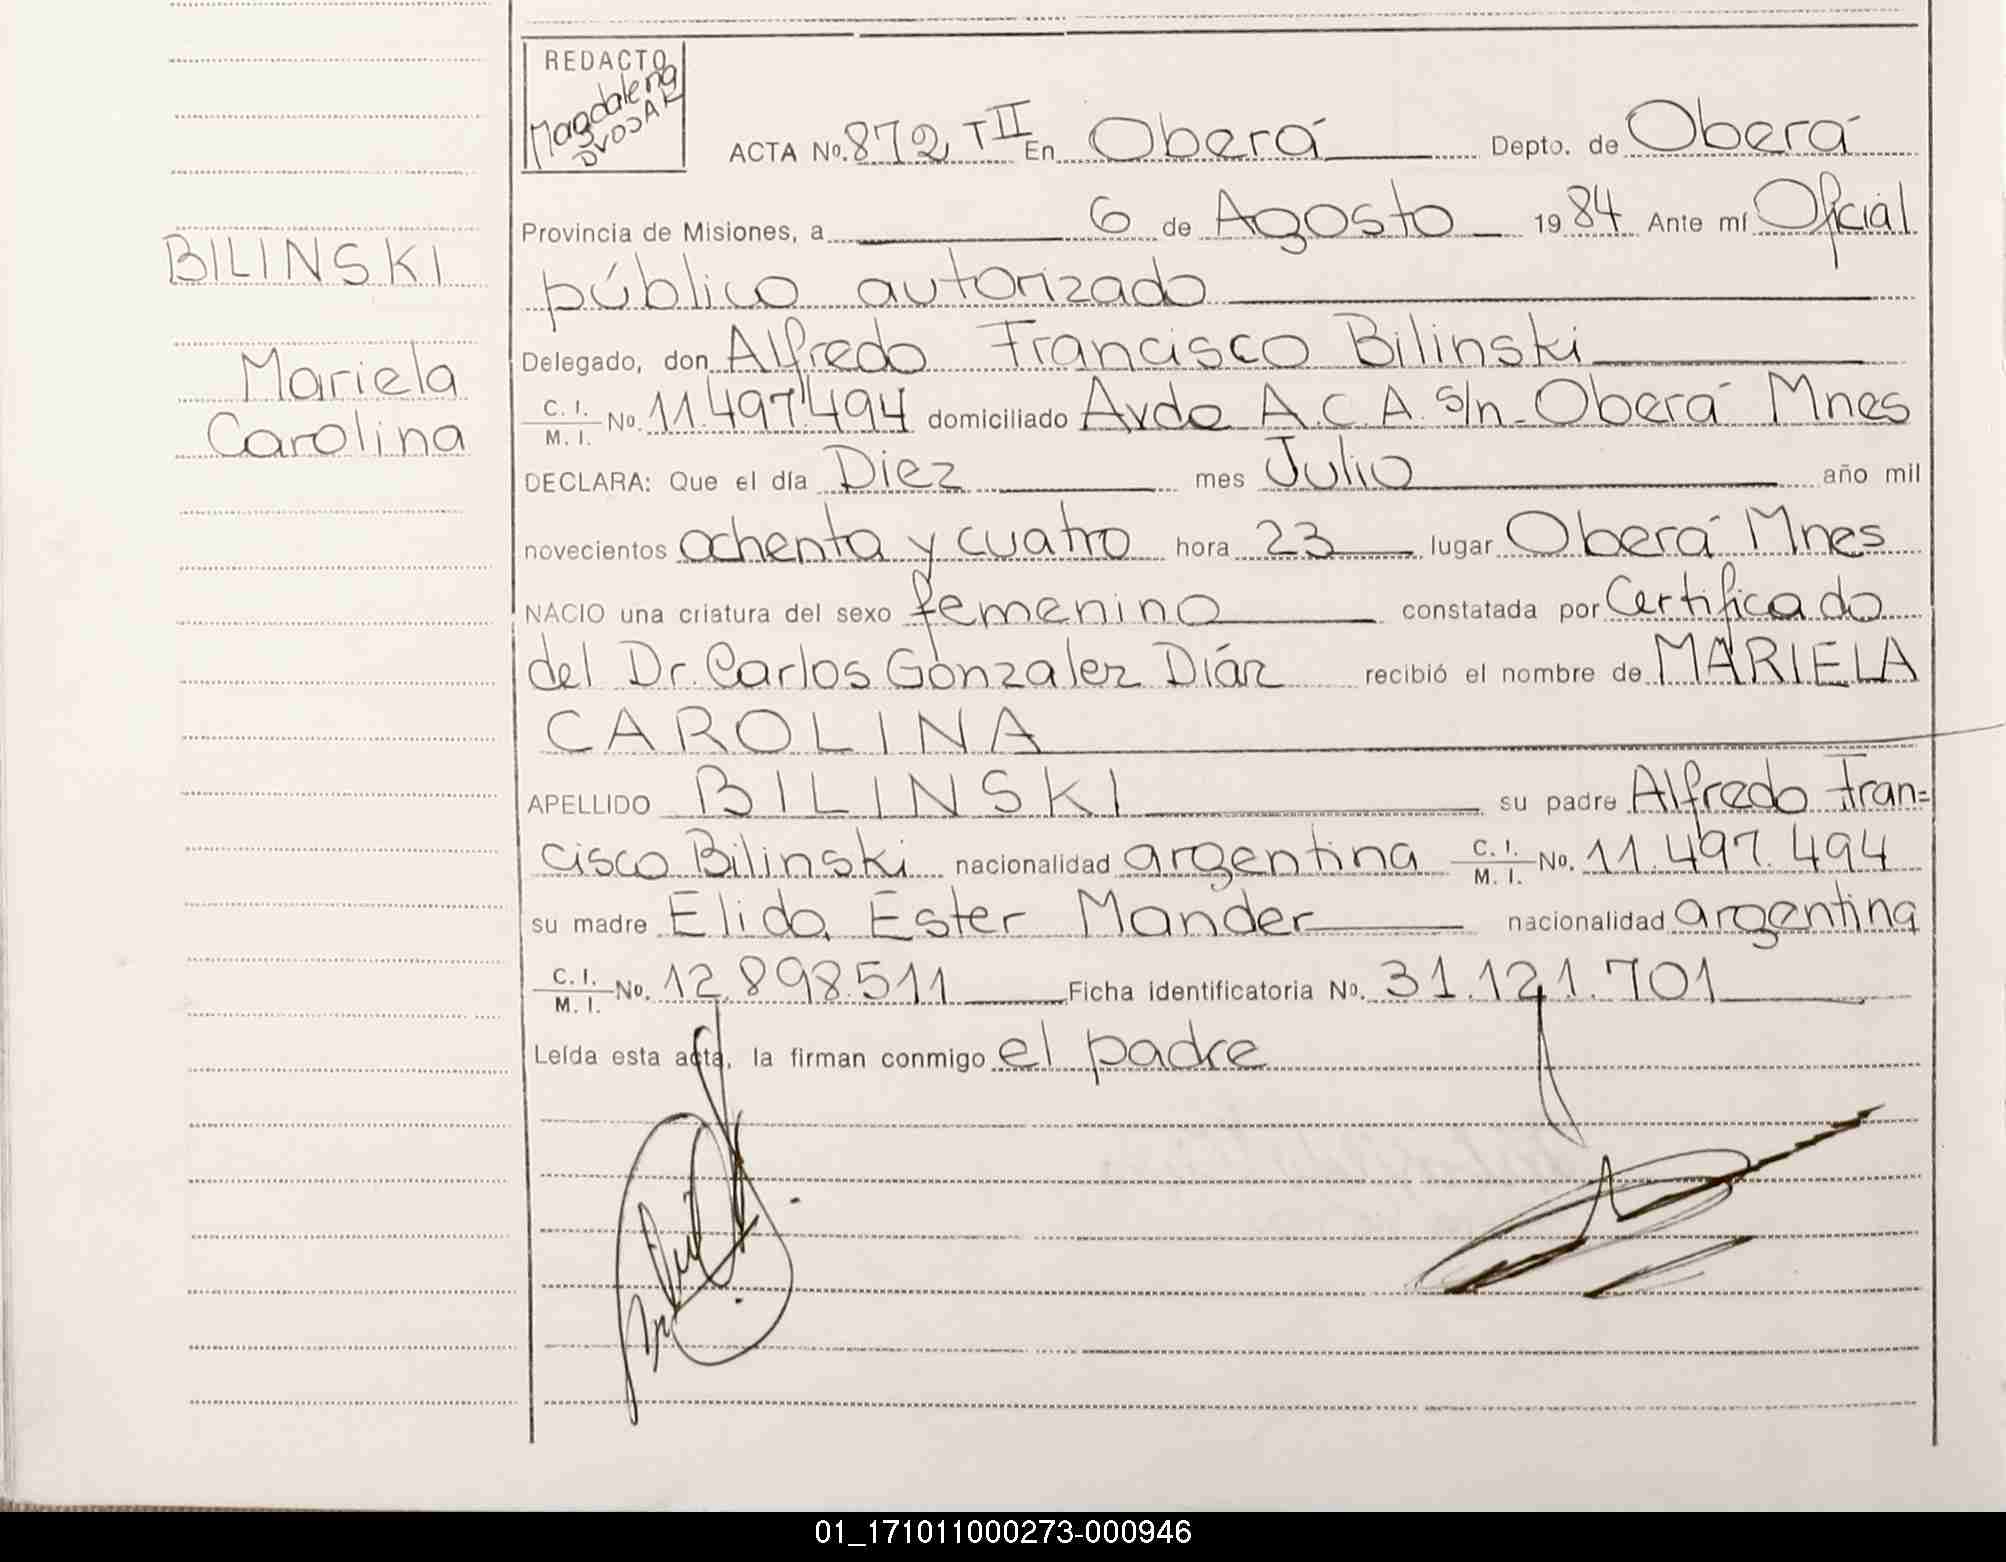 REDACTO
Magdalena
DVOJAK
ACTA No. 872 T II En Oberá Depto. de Oberá
Provincia de Misiones, a 6 de Agosto 1984 Ante mí Oficial
público autorizado
Delegado, don Alfredo Francisco Bilinski
C. I. / M. I. No. 11.497.494 domiciliado Avda A.C.A. s/n - Oberá Mnes
DECLARA: Que el día Diez mes Julio año mil
novecientos ochenta y cuatro hora 23 lugar Oberá Mnes
NACIO una criatura del sexo femenino constatada por Certificado
del Dr. Carlos Gonzalez Diáz recibió el nombre de MARIELA
CAROLINA
APELLIDO BILINSKI su padre Alfredo Fran=
cisco Bilinski nacionalidad argentina C. I. / M. I. No. 11.497.494
su madre Elida Ester Mander nacionalidad argentina
C. I. / M. I. No. 12.898.511 Ficha identificatoria No. 31.121.701
Leída esta acta, la firman conmigo el padre
BILINSKI
Mariela
Carolina
01_171011000273-000946